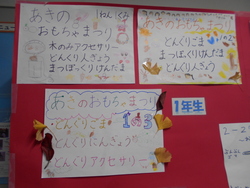 あきの
おもちゃまつり
木のみアクセサリー
どんぐり人ぎょう
まつぼっくりけんだま
あきのおもちゃまつり
どんぐりごま
まつぼっくりけんだま
どんぐり人ぎょう
あきのおもちゃまつり
どんぐりごま
1の3
どんぐりにんぎょう
どんぐりアクセサリー
1年生